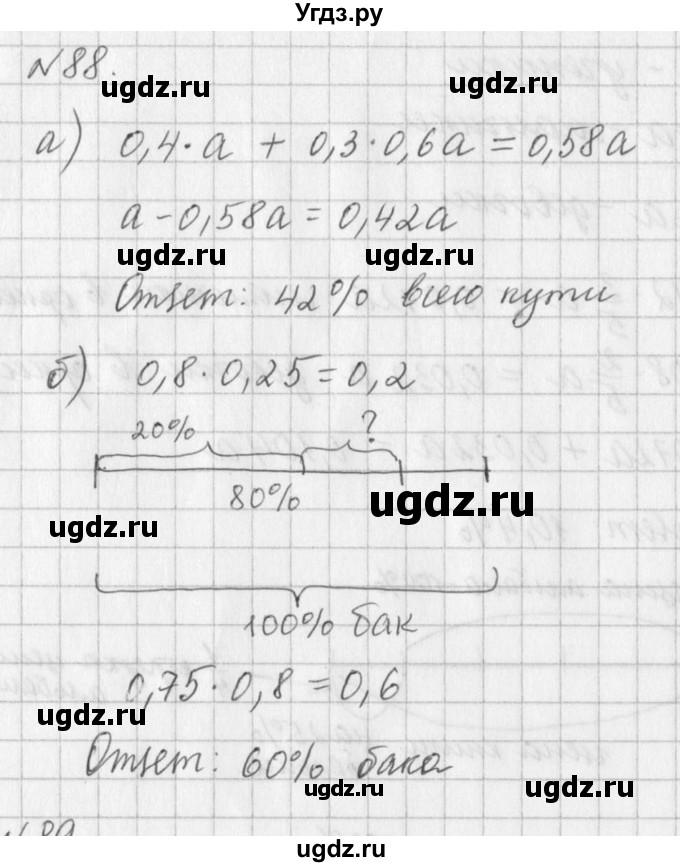 Угдз.ру
№88.
ugdz.ru ugdz.ru
а) 0,4·a + 0,3·0,6a = 0,58a
a - 0,58a = 0,42a
ugdz.ru ugdz.ru
Ответ: 42% всего пути
б) 0,8·0,25 = 0,2
20% ?
80%
ugdz.ru ugdz.ru
100% бак
0,75·0,8 = 0,6
ugdz.ru
Ответ: 60% бака
ugdz.ru
№89
ugdz.ru